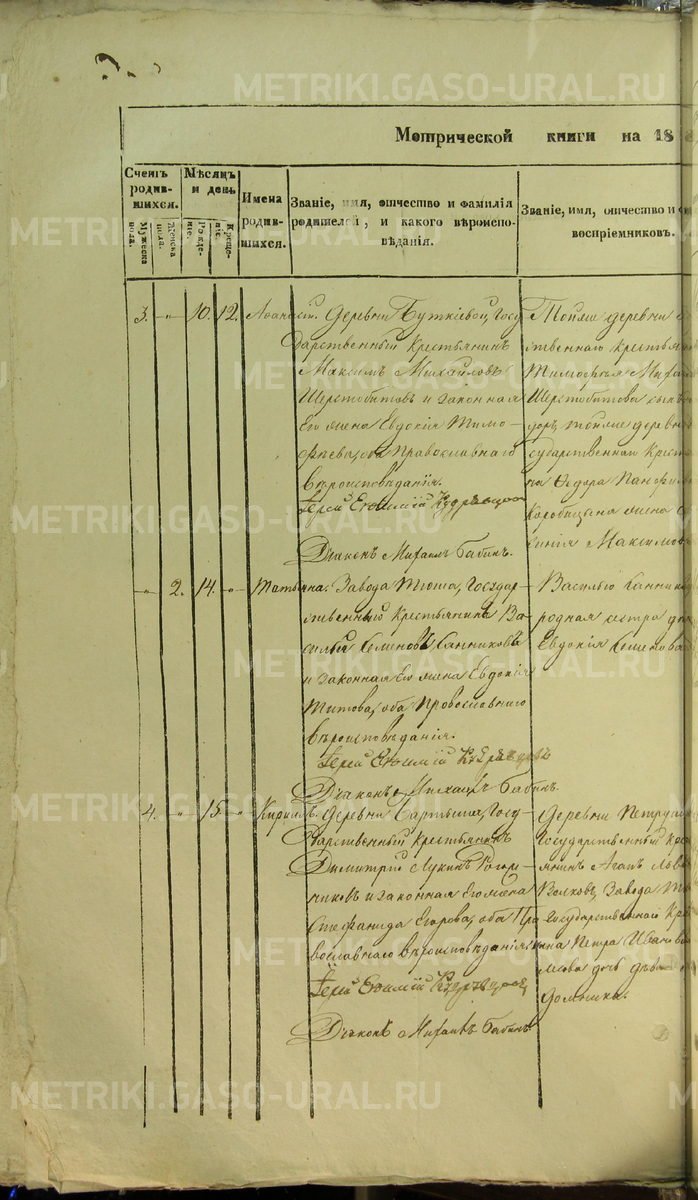 METRIKI.GASO-URAL.RU
Метрической книги на 18
Счетъ родив-шихся.
Мужеска пола.
Женска пола.
Мѣсяцъ и день
Рожде-нія.
Креще-нія.
Имена родив-шихся.
Званіе, имя, отчество и фамилія
родителей, и какого вѣроиспо-
вѣданія.
Званіе, имя, отчество и
воспріемниковъ.
3. -"- 10. 12. Деревни Буткѣевой, Госу
дарственный Крестьянинъ
Максимъ Михайловъ
Шерстобитовъ и законная
Его жена Евдокія Тимо-
фѣева, оба Православнаго
вѣроисповѣданія.
Іерей Евѳимій Кудрявцовъ
Діаконъ Михаилъ Бабинъ.
Тойже деревни
ственнаго крестья
Тимофѣя
Шерстобитова сынъ
тойже дерев
сударственнаго Крест
на Ѳедора Панфи
Коробицына жена
Максимов
-"- 2. 14. -"- Татьяна. Завода Тюша, Государ-
ственный Крестьянинъ Ва
силій Семеновъ Банниковъ
и законная Его жена Евдокія
Титова, оба Провославнаго
вѣроисповѣданія.
Іерей Евѳимій Кудрявцовъ
Діаконъ Михаилъ Бабинъ.
Василью Банник
родная сестра
Евдокія Семенова
4. -"- 15. -"- Кирилъ. Деревни Бартыма, Госу-
дарственный Крестьянинъ
Димитрій Лукинъ
и законная Его жена
Стефанида Егорова, оба Пра
вославнаго вѣроисповѣданія.
Іерей Евѳимій Кудрявцовъ
Діаконъ Михаилъ Бабинъ
Деревни Петру
Государственный Кре
янинъ Агапъ
Волковъ, Завода Тю
Государственнаго Кре
нина Петра Иванов
дочь дѣв
Домника.